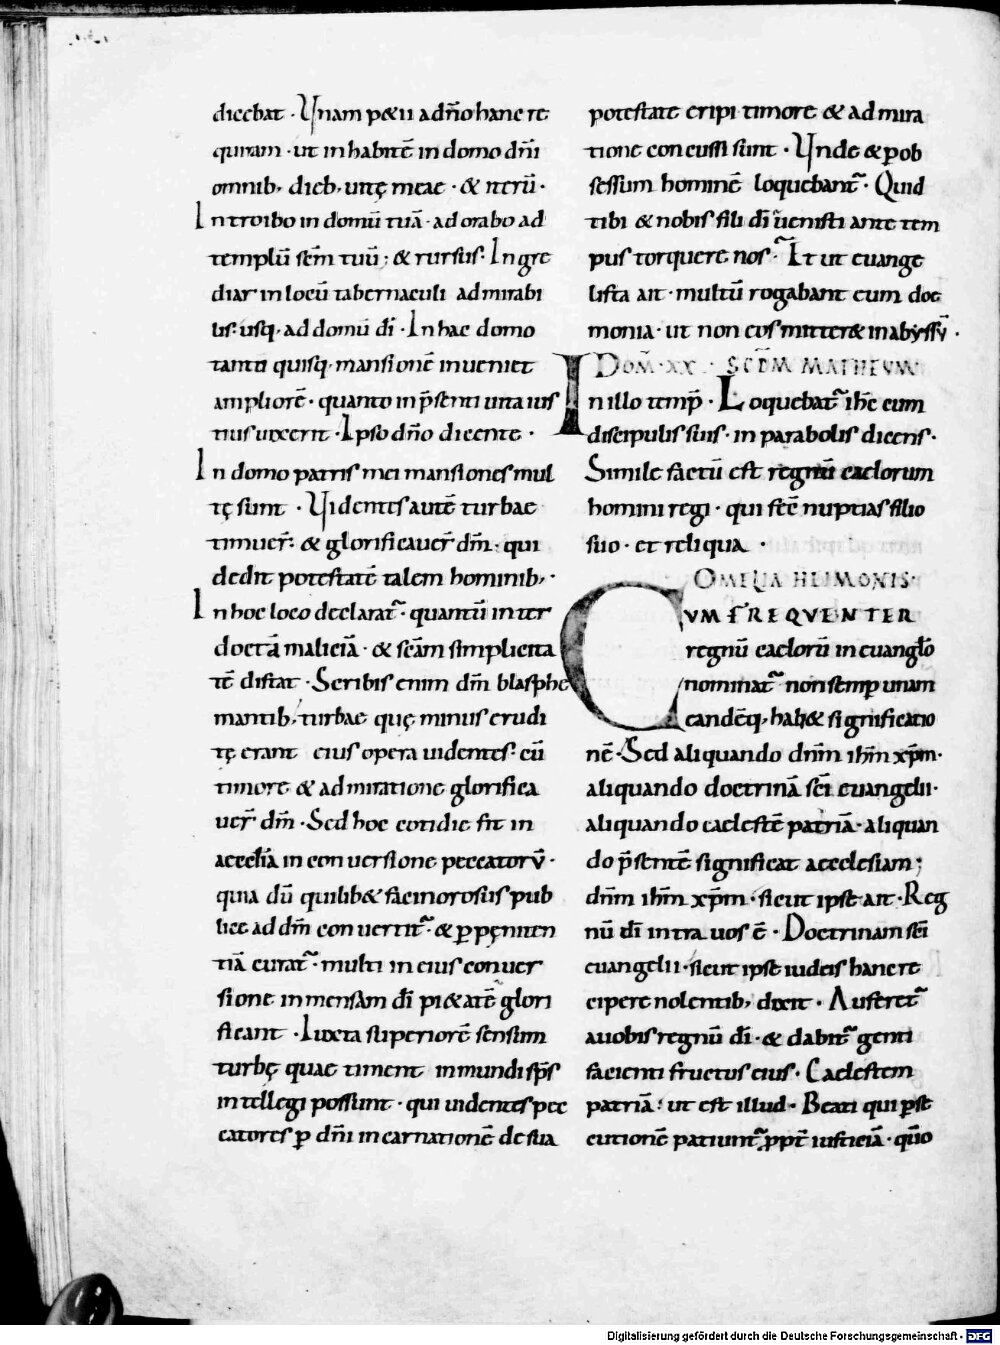 dicebat · Unam p&ii adn̄o hanc re
quiram · ut inhabitē in domo dn̄i
omnib; dieb; uitę meae · & iterū ·
Introibo in domū tuā · adorabo ad
templū scm̄ tuū ; & rursus · Ingre
diar in locū tabernaculi admirabi
lis · usq; ad domū dī · In hac domo
tanto quisq; mansionē inueniet
ampliorē · quanto in p̄senti uita ius
tius uixerit · Ipso dn̄o dicente ·
In domo patris mei mansiones mul
tę sunt · Videntes autē turbae
timuer̄ · & glorificauer̄ dm̄ · qui
dedit potestatē talem hominib; ·
In hoc loco declarat̄ · quantū inter
doctā maliciā · & scām simplicita
tē distat · Scribis enim dm̄ blasphe
mantib; turbae quę minus erudi
tę erant eius opera uidentes · cū
timore & admiratione glorifica
uer̄ dm̄ · Sed hoc cotidie fit in
aecclīa in conuersione peccatorū ·
quia dū quilib& facinorosus pub
lice ad dm̄ conuertit̄ · & p̱ pęniten
tiā curat̄ · multi in eius conuer
sione inmensam dī pi&atē glori
ficant · Iuxta superiorē sensum
turbę quae timent inmundi sp̄s
intellegi possunt · qui uidentes pec
catores p̱ dn̄i incarnationē de sua
potestate eripi timore & admira
tione concussi sunt · Unde & p̱ ob
sessum hominē loquebant̄ · Quid
tibi & nobis fili dī uenisti ante tem
pus torquere nos · It ut euange
lista ait · multū rogabant eum doe
monia · ut non eos mitter& in abyssū ·
DOM̄ · XX · SCDM MATHEVM
In illo temp̄ · Loquebat̄ ihc̄ cum
discipulis suis · in parabolis dicens ·
Simile factū est regnū caelorum
homini regi · qui fec̄ nuptias filio
suo · et reliqua ·
OMELIA HEIMONIS ·
CVM FREQVENTER
regnū caelorū in euanglō
nominat̄ non semp̱ unam
eandēq; hab& significatio
nē · Sed aliquando dnm̄ ihm̄ xp̄m ·
aliquando doctrinā scī euangelii ·
aliquando caelestē patriā · aliquan
do p̄sentē significat aecclesiam ;
dnm̄ ihm̄ xp̄m · sicut ipse ait · Reg
nū dī intra uos ē · Doctrinam scī
euangelii · sicut ipse iudeis hanc re
cipere nolentib; dixit · Auferet̄
a uobis regnū dī · & dabit̄ genti
facienti fructus eius · Caelestem
patriā · ut est illud · Beati qui p̱se
cutionē patiunt̄ ppt̄ iusticiā · qm̄o
Digitalisierung gefördert durch die Deutsche Forschungsgemeinschaft - DFG